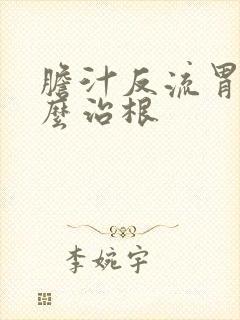 膽汁反流胃
麽治根
李婉宇